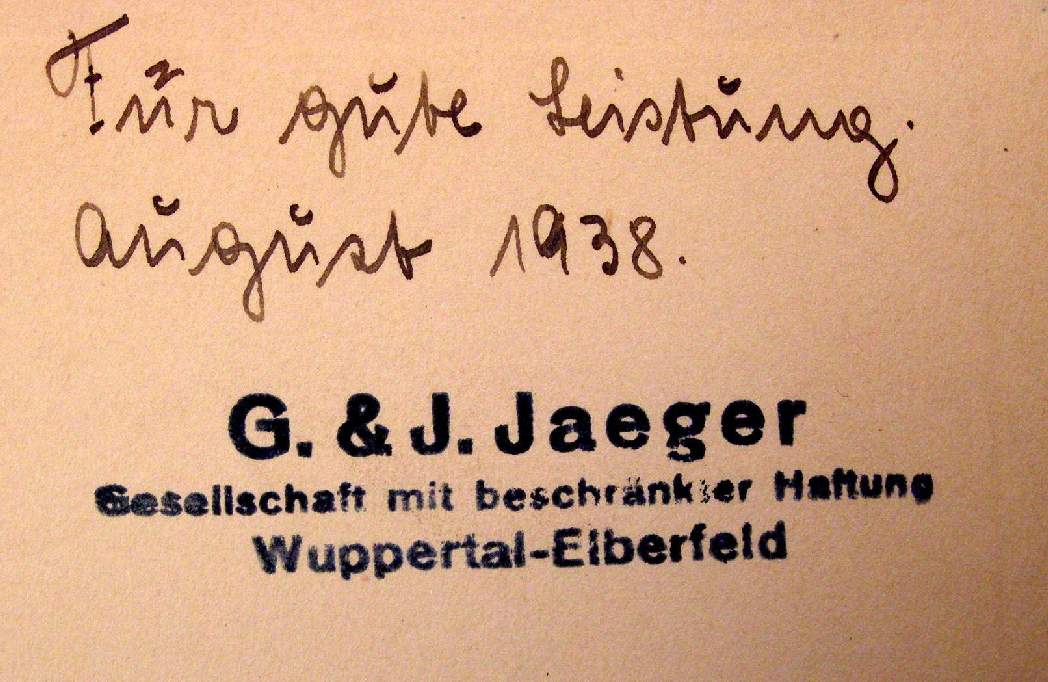 Für gute Leistung.
August 1938.
G. & J. Jaeger
Gesellschaft mit beschränkter Haftung
Wuppertal-Elberfeld